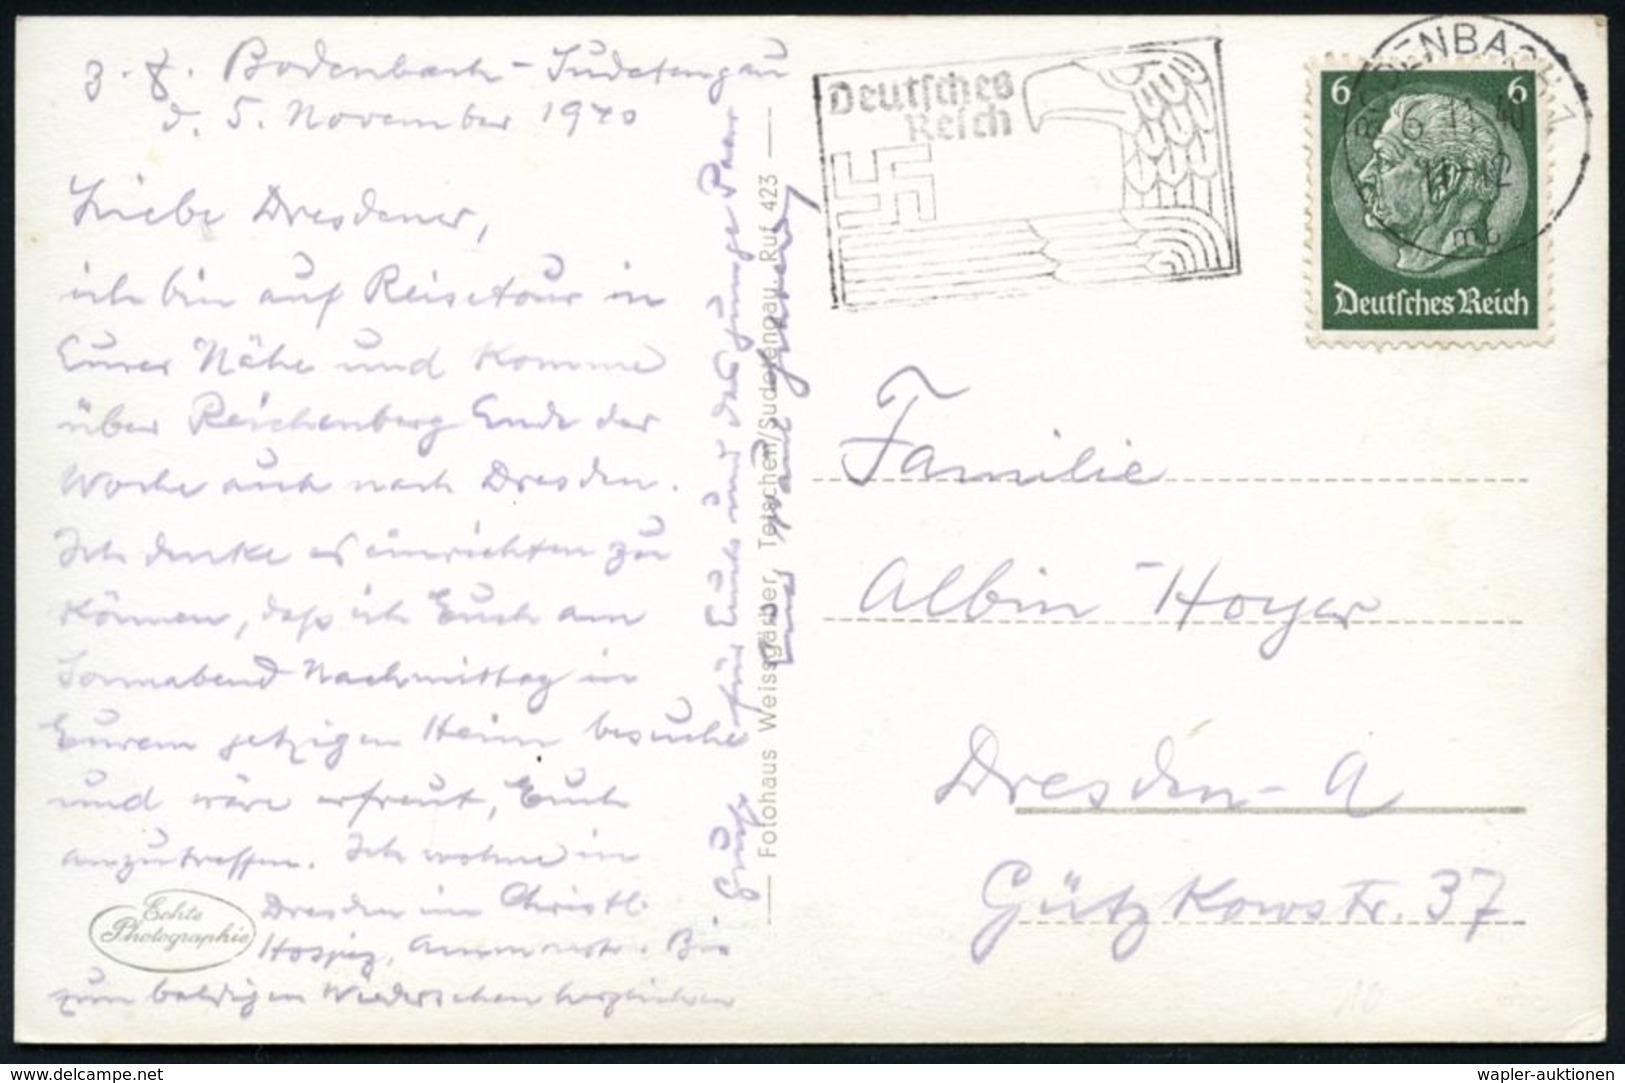 z. Z. Bodenbach - Sudetengau
d. 5. November 1940
Liebe Dresdener,
ich bin auf Reisetour in
Eurer Nähe und komme
über Reichenberg Ende der
Woche auch nach Dresden.
Ich denke es einrichten zu
können, daß ich Euch am
Sonnabend Nachmittag in
Eurem jetzigen Heim besuche
und wäre erfreut, Euch
anzutreffen. Ich wohne in
Dresden im Christl.
Hospiz, Ammonstr. Bis
zum baldigen Wiedersehen herzlichen
Gruß für Euch und das junge Paar
Euer Paul
Echte
Photographie
Fotohaus Weissgärber, Tetschen/Sudetengau, Ruf 423
Deutsches
Reich
BODENBACH 1
6.11.40
11-12
6 6
Deutsches Reich
Familie
Albin Hoyer
Dresden - A
Gützkowstr. 37
10
www.delcampe.net
wapler-auktionen